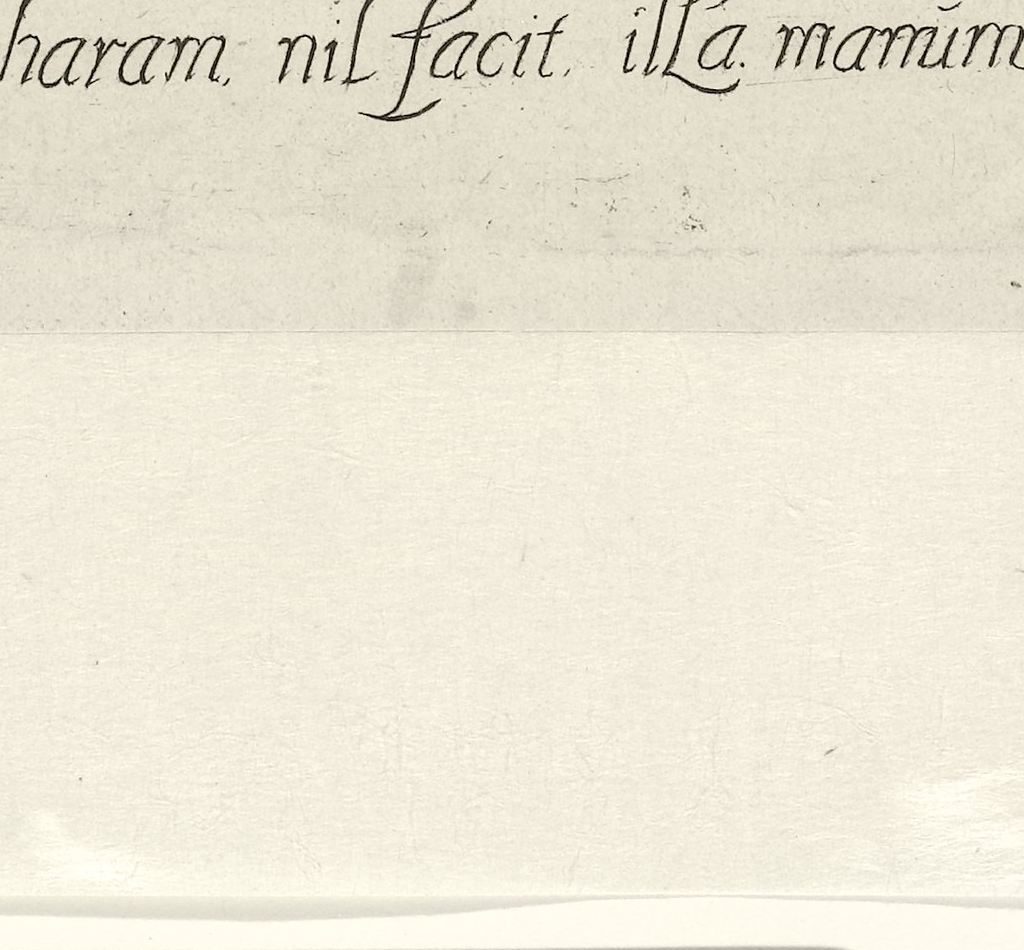 haram, nil facit, illa. manūm